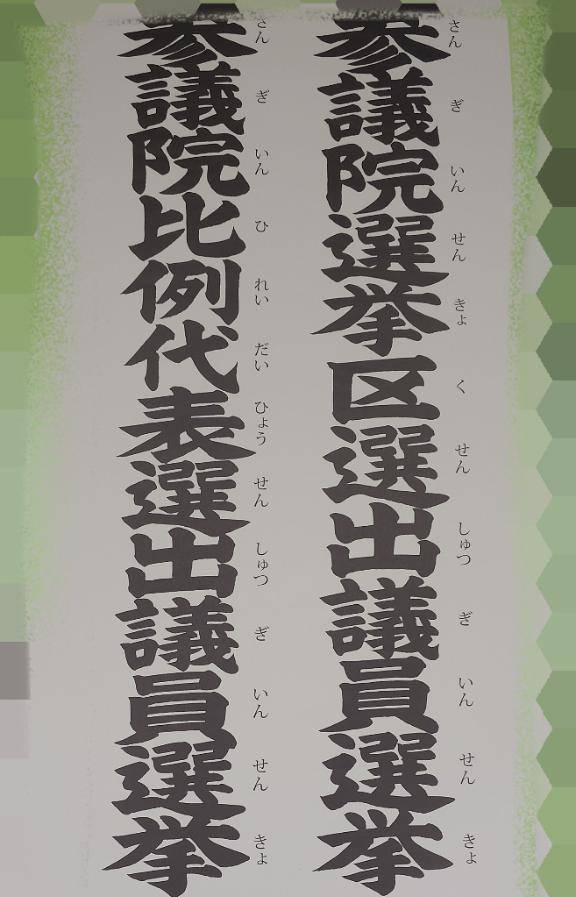 参議院選挙区選出議員選挙
さんぎいんせんきょくせんしゅつぎいんせんきょ
参議院比例代表選出議員選挙
さんぎいんひれいだいひょうせんしゅつぎいんせんきょ